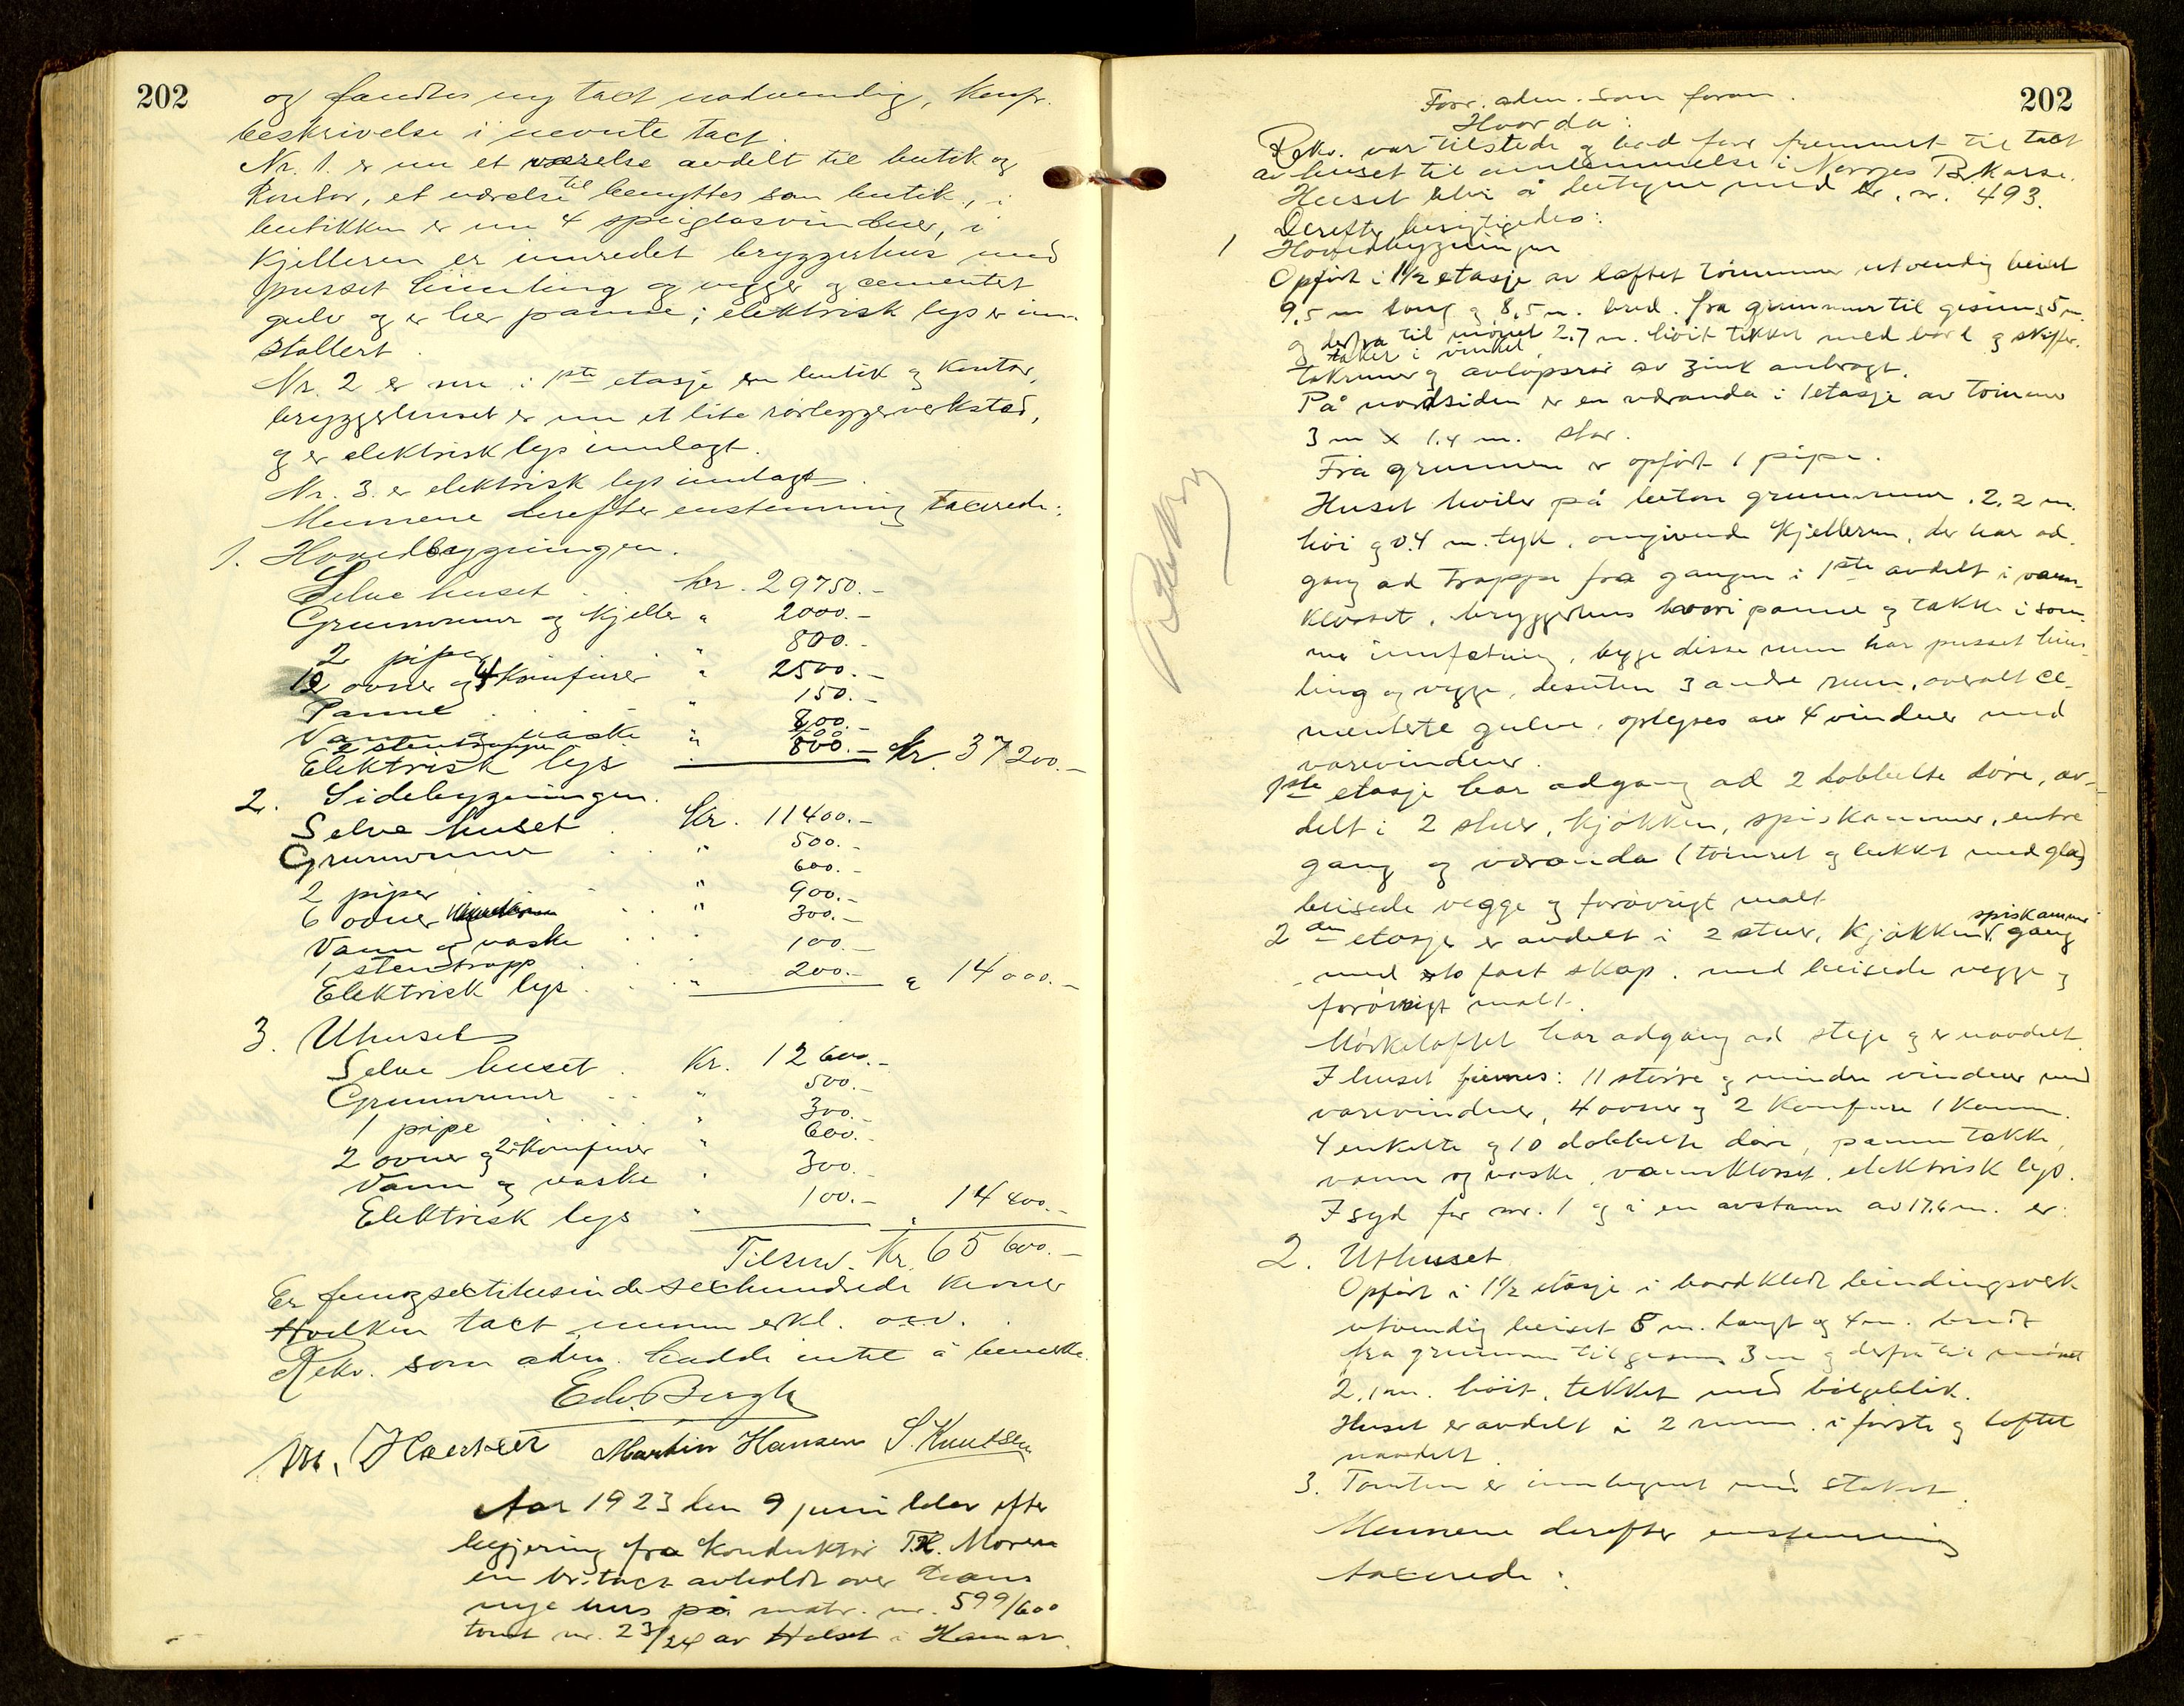 202
og fandtes ny tact nødvendig, konfr.
beskrivelse i nevnte tact.
Nr. 1. er nu et værelse avdelt til butik og
kontor, et værelse til benyttes som butik, i
butikken er nu 4 speilglasvinduer, i
kjelleren er innredet bryggerhus med
pusset himling og vegger og cementet
gulv og er her panne; elektrisk lys er inn-
stallert.
Nr. 2 er nu i 1ste etasje en butik og kontor,
bryggerhuset er nu et lite rørleggerverksted,
og er elektrisk lys innlagt.
Nr. 3. er elektrisk lys innlagt.
Mennene derefter enstemmig taxerede:
1. Hovedbygningen.
Selve huset . . kr. 29750.-
Grunnmur og kjeller " 2000.-
2 piper " 800.-
12 ovner og 4 komfurer " 2500.-
Panne . . " 150.-
Vann og vaske " 800.-
2 stentrapper
Elektrisk lys " 800.- kr. 37200.-
2. Sidebygningen.
Selve huset . kr. 11400.-
Grunnmur . . " 500.-
2 piper " 600.-
6 ovner . " 900.-
Vann og vaske . . 300.-
1 stentrapp . . 100.-
Elektrisk lys . . " 200.- " 14000.-
3. Uhuset
Selve huset . Kr. 12600.-
Grunnmur . . " 500.-
1 pipe " 300.-
2 ovner og 2 komfurer " 600.-
Vann og vaske " 300.-
Elektrisk lys " 100.- " 14400.-
Tilsm. kr. 65600.-
Er femogsextitusinde sexhundrede kroner
Hvilken tact mennene erkl. osv.
Rekv. som aden. hadde intet å bemerke.
Edv. Bergh
Martin Hansen S. Knutsen
Aar 1923 den 9 juni blev efter
begjering fra konduktør Moren
en br. tact avholdt over hans
nye hus på matr. nr. 599/600
tomt nr. 23/24 av Holset i Hamar.
202
Forr. aden. som foran.
Hvor da:
Rekv. var tilstede og bad forr. fremmet til tact
av huset til innlemmelse i Norges Br. Kasse.
Huset blir å betegne med br. nr. 493.
Derefter besigtigedes:
1 Hovedbygningen
Opført i 1½ etasje av laftet tømmer utvendig beiset
9,5 m lang og 8,5 m. bred. fra grunnmur til gesims 5 m.
og derfra til mønet 2.7 m. høit tekket med bord og skifer.
taket i vinkel,
takrenner og avløpsrør av zink anbragt.
På nordsiden er en veranda i 1 etasje av tømmer
3 m x 1.4 m. stor.
Fra grunnen er opført 1 pipe.
Huset hviler på beton grunnmur, 2,2 m.
høi og 0.4 m. tyk, omgivende kjelleren, der har ad-
gang ad trappe fra gangen i 1ste avdelt i vann-
klosset, bryggerhus hvori panne og takke i sam-
me innfatning, begge disse rum har pusset him-
ling og vegge, desuten 3 andre rum, overalt ce-
mentete gulve, oplyses av 4 vinduer med
varevinduer.
1ste etasje har adgang ad 2 dobbelte døre, av-
delt i 2 stuer, kjøkken, spiskammer, entre
gang og veranda (tømret og lukket med glas)
beisede vegge og forøvrigt malt
2den etasje er avdelt i 2 stuer, kjøkken, spiskammer gang
med to fast skap. med beisede vegge og
forøvrigt malt.
Mørkeloftet har adgang ad stige og er uavdelt.
I huset finnes: 11 større og mindre vinduer med
varevinduer, 4 ovner og 2 komfure 1 kamin.
4 enkelte og 10 dobbelte døre, panne takke,
vann og vaske, vannklosset, elektrisk lys.
I syd for nr. 1 og i en avstann av 17.6 m. er:
2. Uthuset
Opført i 1½ etasje i bordkledt bindingsverk
utvendig beiset 8 m. langt og 4 m. bredt
fra grunnen til gesims 3 m og derfra til mønet
2.1 m. høit, tekket med bølgeblik.
Huset er avdelt i 2 rum i første og loftet
uavdelt.
3. Tomten er innhegnet med staket.
Mennene derefter enstemmig
taxerede: